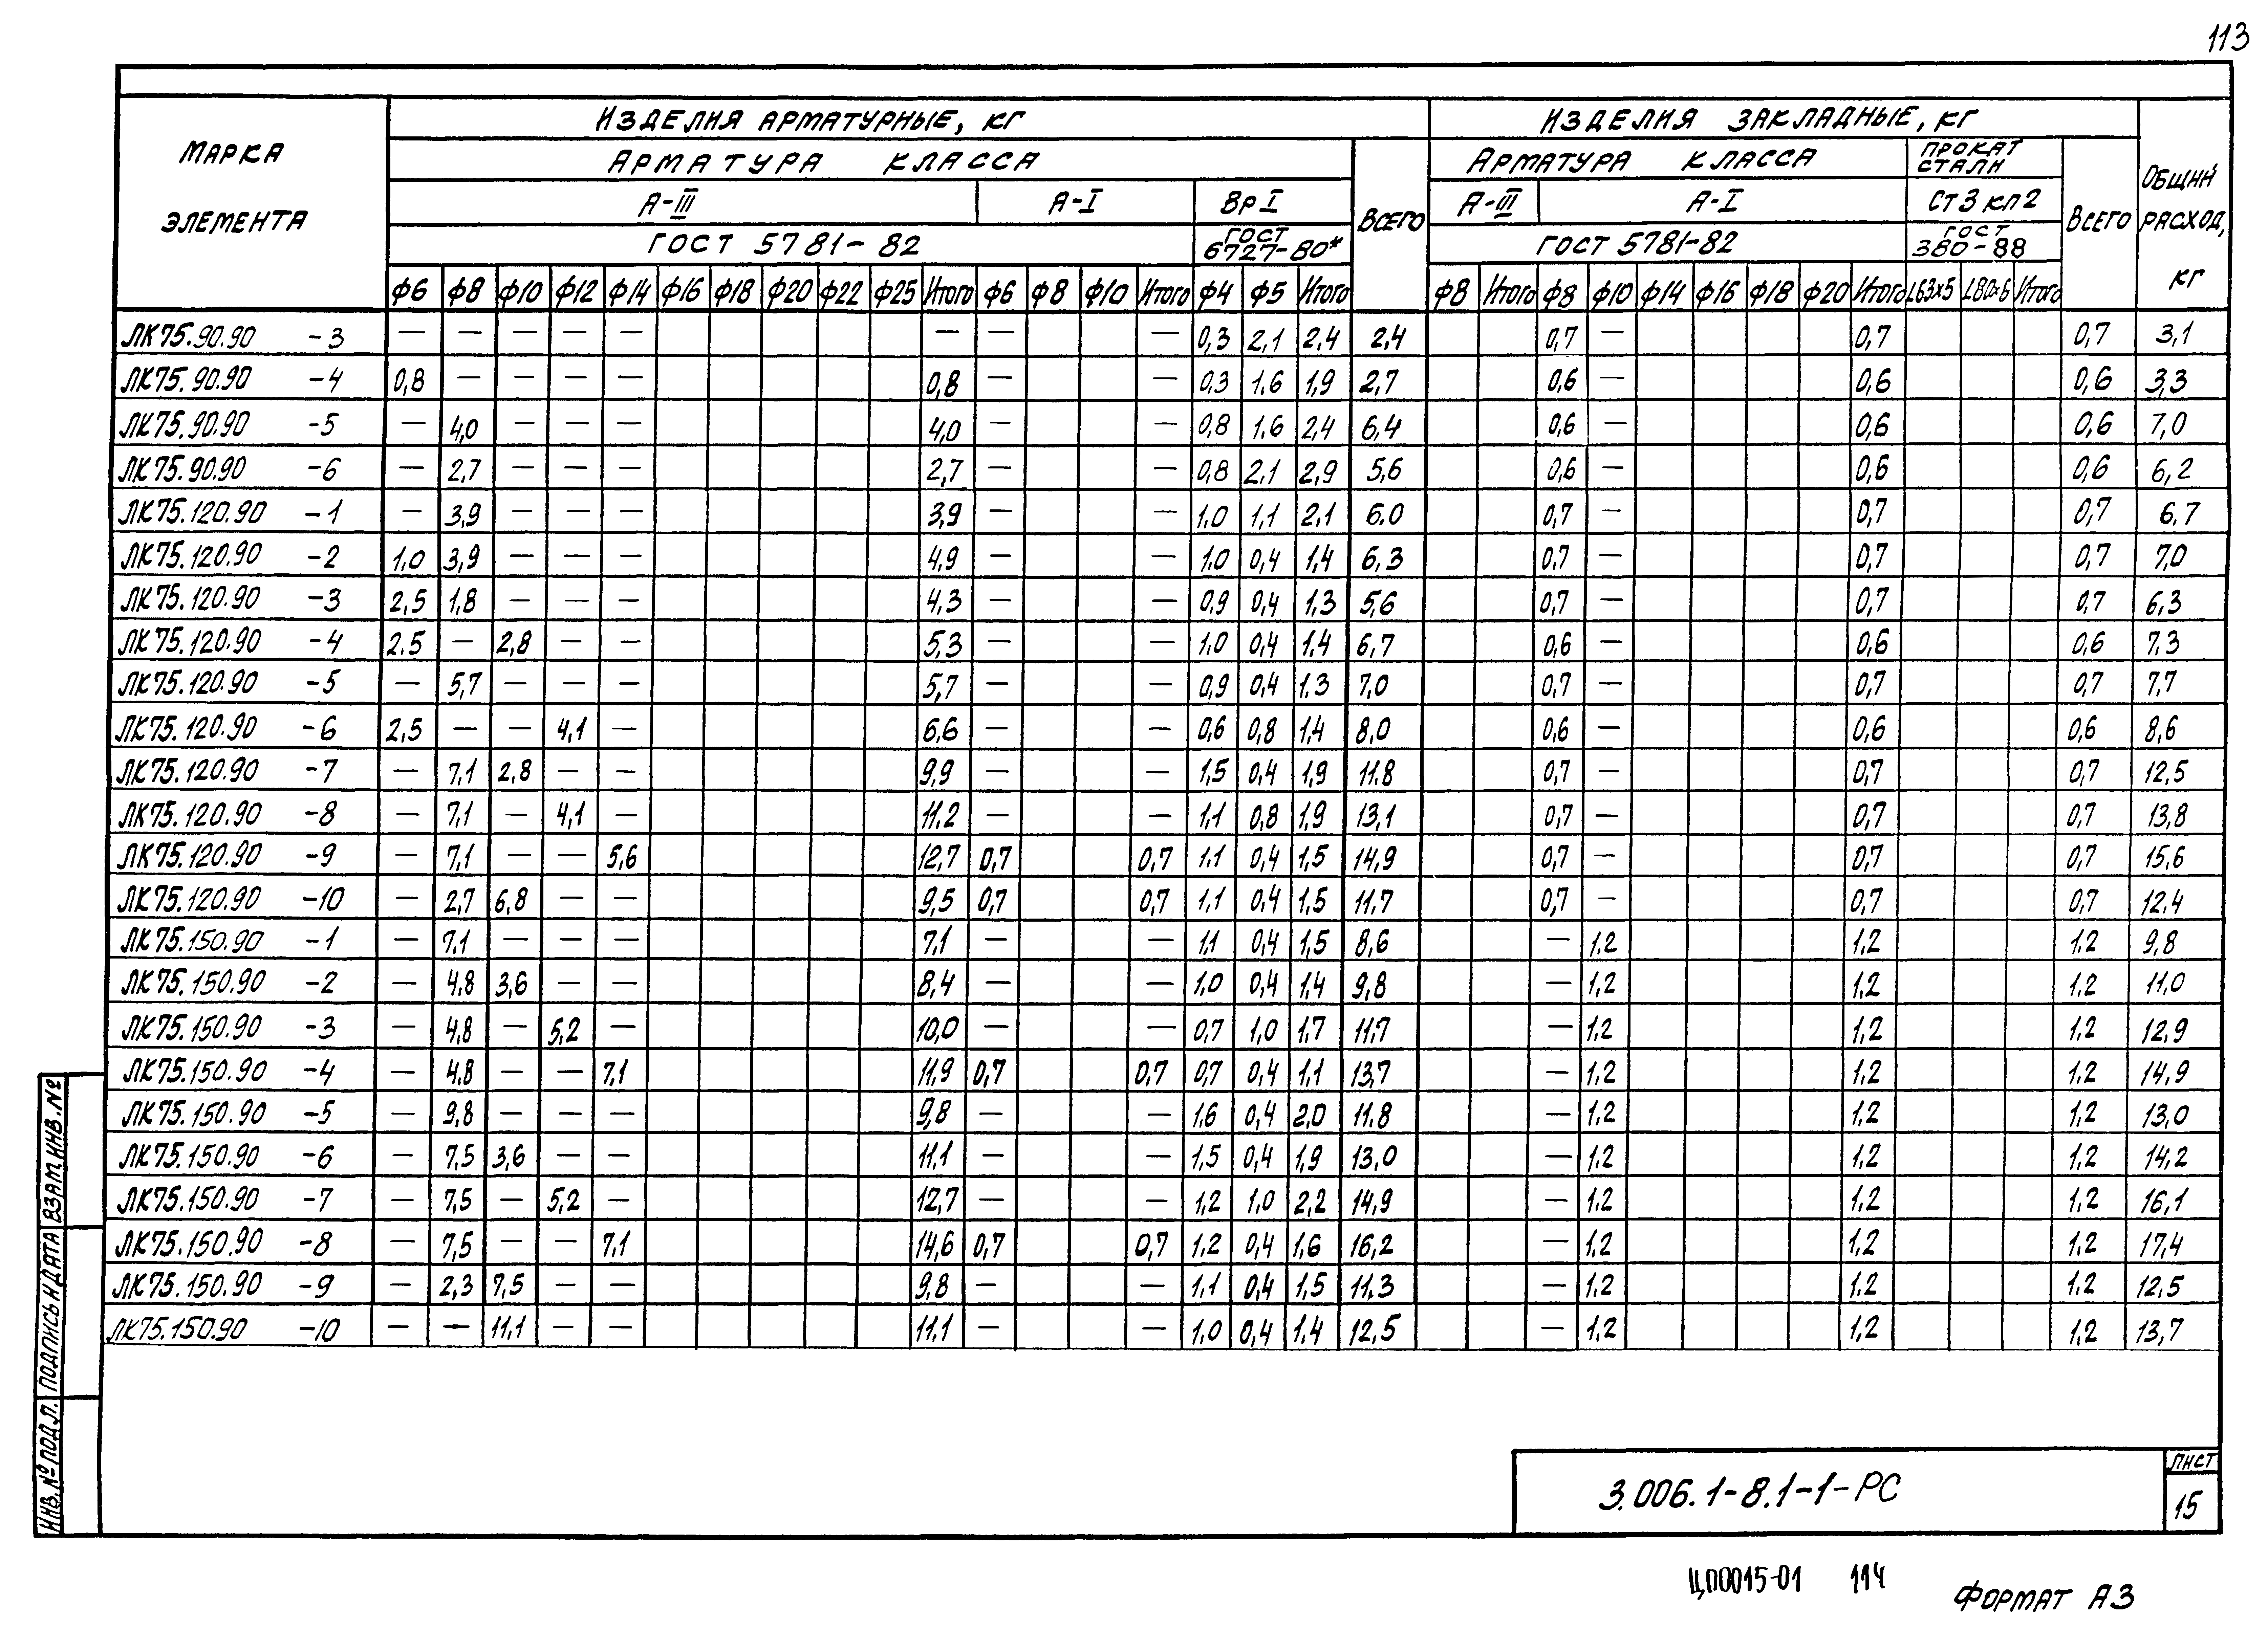 113
МАРКА ЭЛЕМЕНТА
ИЗДЕЛИЯ АРМАТУРНЫЕ, КГ
ИЗДЕЛИЯ ЗАКЛАДНЫЕ, КГ
ОБЩИЙ РАСХОД, КГ
АРМАТУРА КЛАССА
ВСЕГО
АРМАТУРА КЛАССА
ПРОКАТ СТАЛИ
ВСЕГО
А-III А-I ВрI А-III А-I СТ3КП2
ГОСТ 5781-82 ГОСТ 6727-80* ГОСТ 5781-82 ГОСТ 380-88
Ф6 Ф8 Ф10 Ф12 Ф14 Ф16 Ф18 Ф20 Ф22 Ф25 Итого Ф6 Ф8 Ф10 Итого Ф4 Ф5 Итого Ф8 Итого Ф8 Ф10 Ф14 Ф16 Ф18 Ф20 Итого L63х5 L80х6 Итого
ЛК75.90.90 -3 — — — — — — — — 0,3 2,1 2,4 2,4 0,7 — 0,7 0,7 3,1
ЛК75.90.90 -4 0,8 — — — — 0,8 — — 0,3 1,6 1,9 2,7 0,6 — 0,6 0,6 3,3
ЛК75.90.90 -5 — 4,0 — — — 4,0 — — 0,8 1,6 2,4 6,4 0,6 — 0,6 0,6 7,0
ЛК75.90.90 -6 — 2,7 — — — 2,7 — — 0,8 2,1 2,9 5,6 0,6 — 0,6 0,6 6,2
ЛК75.120.90 -1 — 3,9 — — — 3,9 — — 1,0 1,1 2,1 6,0 0,7 — 0,7 0,7 6,7
ЛК75.120.90 -2 1,0 3,9 — — — 4,9 — — 1,0 0,4 1,4 6,3 0,7 — 0,7 0,7 7,0
ЛК75.120.90 -3 2,5 1,8 — — — 4,3 — — 0,9 0,4 1,3 5,6 0,7 — 0,7 0,7 6,3
ЛК75.120.90 -4 2,5 — 2,8 — — 5,3 — — 1,0 0,4 1,4 6,7 0,6 — 0,6 0,6 7,3
ЛК75.120.90 -5 — 5,7 — — — 5,7 — — 0,9 0,4 1,3 7,0 0,7 — 0,7 0,7 7,7
ЛК75.120.90 -6 2,5 — — 4,1 — 6,6 — — 0,6 0,8 1,4 8,0 0,6 — 0,6 0,6 8,6
ЛК75.120.90 -7 — 7,1 2,8 — — 9,9 — — 1,5 0,4 1,9 11,8 0,7 — 0,7 0,7 12,5
ЛК75.120.90 -8 — 7,1 — 4,1 — 11,2 — — 1,1 0,8 1,9 13,1 0,7 — 0,7 0,7 13,8
ЛК75.120.90 -9 — 7,1 — — 5,6 12,7 0,7 0,7 1,1 0,4 1,5 14,9 0,7 — 0,7 0,7 15,6
ЛК75.120.90 -10 — 2,7 6,8 — — 9,5 0,7 0,7 1,1 0,4 1,5 11,7 0,7 — 0,7 0,7 12,4
ЛК75.150.90 -1 — 7,1 — — — 7,1 — — 1,1 0,4 1,5 8,6 — 1,2 1,2 1,2 9,8
ЛК75.150.90 -2 — 4,8 3,6 — — 8,4 — — 1,0 0,4 1,4 9,8 — 1,2 1,2 1,2 11,0
ЛК75.150.90 -3 — 4,8 — 5,2 — 10,0 — — 0,7 1,0 1,7 11,7 — 1,2 1,2 1,2 12,9
ЛК75.150.90 -4 — 4,8 — — 7,1 11,9 0,7 0,7 0,7 0,4 1,1 13,7 — 1,2 1,2 1,2 14,9
ЛК75.150.90 -5 — 9,8 — — — 9,8 — — 1,6 0,4 2,0 11,8 — 1,2 1,2 1,2 13,0
ЛК75.150.90 -6 — 7,5 3,6 — — 11,1 — — 1,5 0,4 1,9 13,0 — 1,2 1,2 1,2 14,2
ЛК75.150.90 -7 — 7,5 — 5,2 — 12,7 — — 1,2 1,0 2,2 14,9 — 1,2 1,2 1,2 16,1
ЛК75.150.90 -8 — 7,5 — — 7,1 14,6 0,7 0,7 1,2 0,4 1,6 16,2 — 1,2 1,2 1,2 17,4
ЛК75.150.90 -9 — 2,3 7,5 — — 9,8 — — 1,1 0,4 1,5 11,3 — 1,2 1,2 1,2 12,5
ЛК75.150.90 -10 — — 11,1 — — 11,1 — — 1,0 0,4 1,4 12,5 — 1,2 1,2 1,2 13,7
ИНВ. № ПОДЛ. ПОДПИСЬ И ДАТА ВЗАМ. ИНВ. №
3.006.1-8.1-1-РС
ЛИСТ
15
ЦП0015-01 114
ФОРМАТ А3